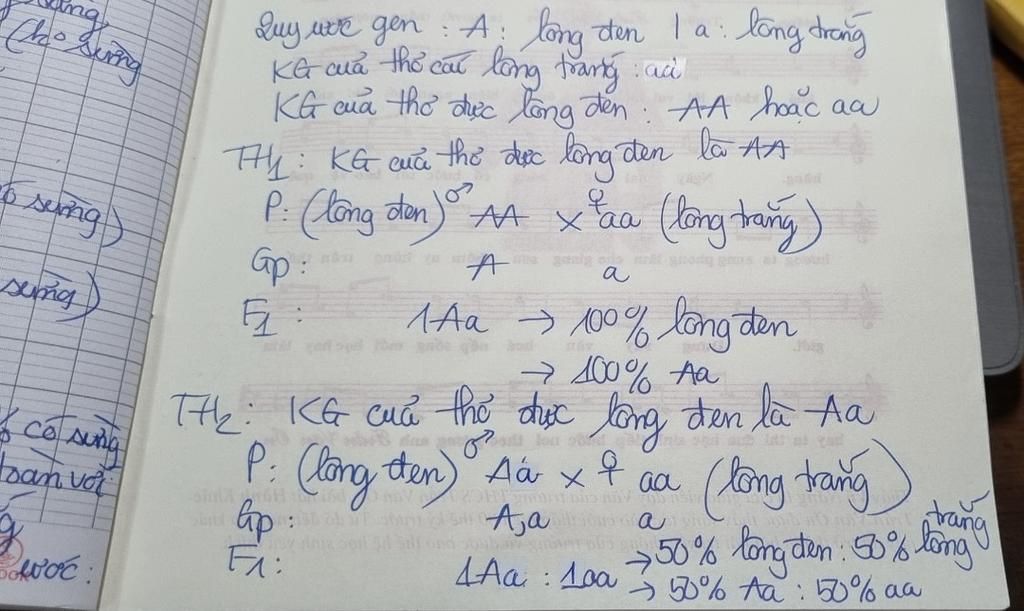 (Cho sừng
Quy ước gen : A : lông đen | a : lông trắng
KG của thỏ cái lông trắng : aa
KG của thỏ đực lông đen : AA hoặc aa
TH1 : KG của thỏ đực lông đen là AA
P : (lông đen) ♂ AA x ♀ aa (lông trắng)
Gp : A a
F1 : 1Aa → 100% lông đen
→ 100% Aa
TH2 : KG của thỏ đực lông đen là Aa
P : (lông đen) ♂ Aa x ♀ aa (lông trắng)
Gp : A,a a
F1 : 1Aa : 1aa → 50% lông đen : 50% lông trắng
→ 50% Aa : 50% aa
sừng)
sừng)
có sừng
toàn với
ước :